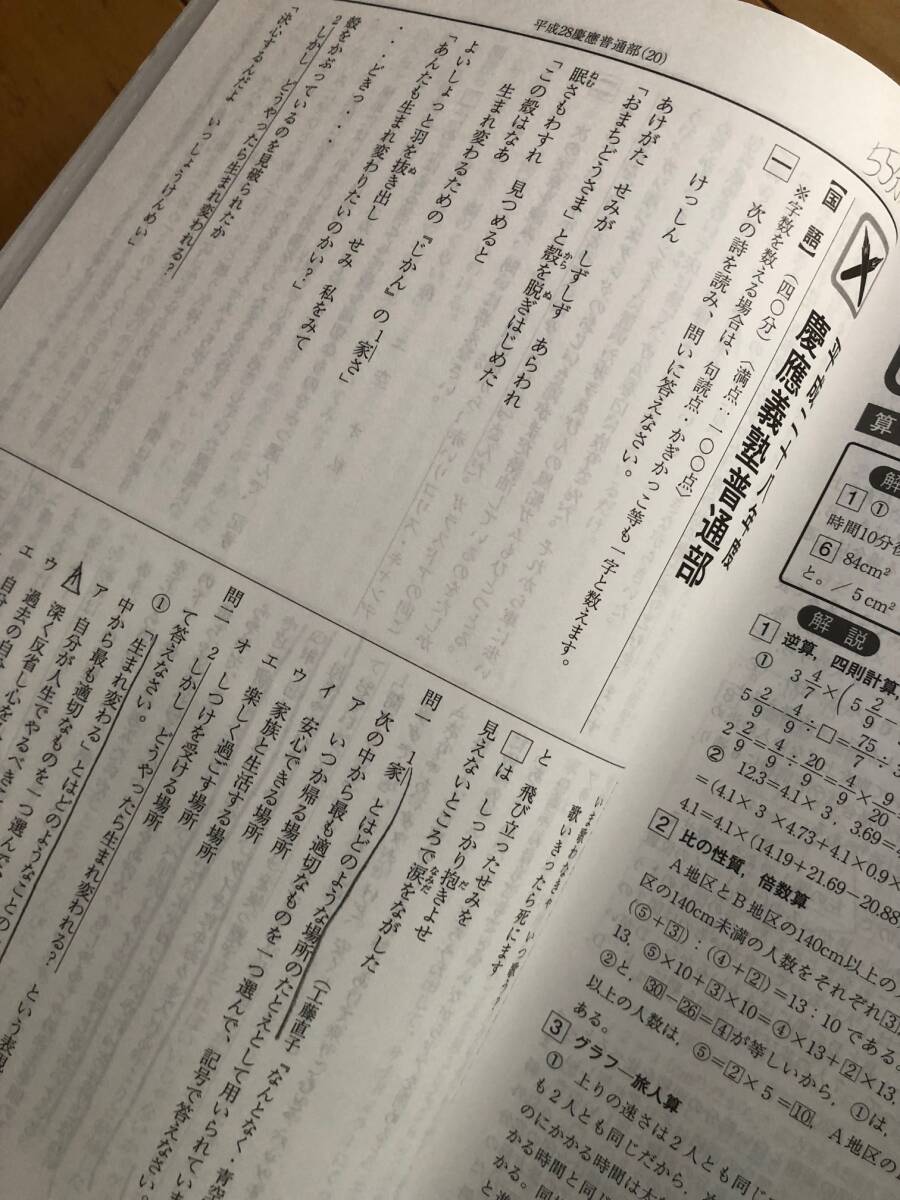 平成28慶應普通部(20)
平成二十八年度
慶應義塾普通部
【国語】 (四〇分) 〈満点:一〇〇点〉
※字数を数える場合は、句読点・かぎかっこ等も一字と数えます。
一 次の詩を読み、問いに答えなさい。
けっしん
あけがた せみが しずしず あらわれ
「おまちどうさま」と殻を脱ぎはじめた
眠さもわすれ 見つめると
「この殻はなあ
生まれ変わるための『じかん』の1家さ」
よいしょっと羽を抜き出し せみ 私をみて
「あんたも生まれ変わりたいのかい?」
・・・どきっ・・・
殻をかぶっているのを見破られたか
2しかし どうやったら生まれ変われる?
「決心するんだよ いっしょうけんめい」
歌いきったら死にます
と 飛び立ったせみを
□は しっかり抱きよせ
見えないところで涙をながした
(工藤直子『なんとなく・青空
問一 1家 とはどのような場所のたとえとして用いられていま
次の中から最も適切なものを一つ選んで、記号で答えなさい。
ア いつか帰る場所
イ 安心できる場所
ウ 家族と生活する場所
エ 楽しく過ごす場所
オ しつけを受ける場所
問二 2しかし どうやったら生まれ変われる? という表現
て答えなさい。
① 「生まれ変わる」とはどのようなことの
中から最も適切なものを一つ選んで
ア 自分が人生でやるべきこ
ウ 過去の自
エ 自分
算
解
1 ①
時間10分後
6 84cm²
と。/5cm²
解説
1 逆算,四則計算,
① 3 4/7×(5 2/9−
5 2/9−4/9÷□=75/
2 2/9=4/9÷20/9=4/9×9/20
② 12.3=4.1×3,3.69=4
=(4.1×3×4.73+4.1×0.9×
4.1=4.1×(14.19+21.69−20.88
2 比の性質,倍数算
A地区とB地区の140cm以上の
区の140cm未満の人数をそれぞれ3
(⑤+3):(④+2)=13:10である。
13,⑤×10+3×10=④×13+2×13,
②と,30−26=4が等しいから,①は,
以上の人数は,⑤=2×5=10,A地区の
ある。
3 グラフ—旅人算
① 上りの速さは2人とも同
も2人とも同じだから,
のにかかる時間は
かる時間と同
かる。同